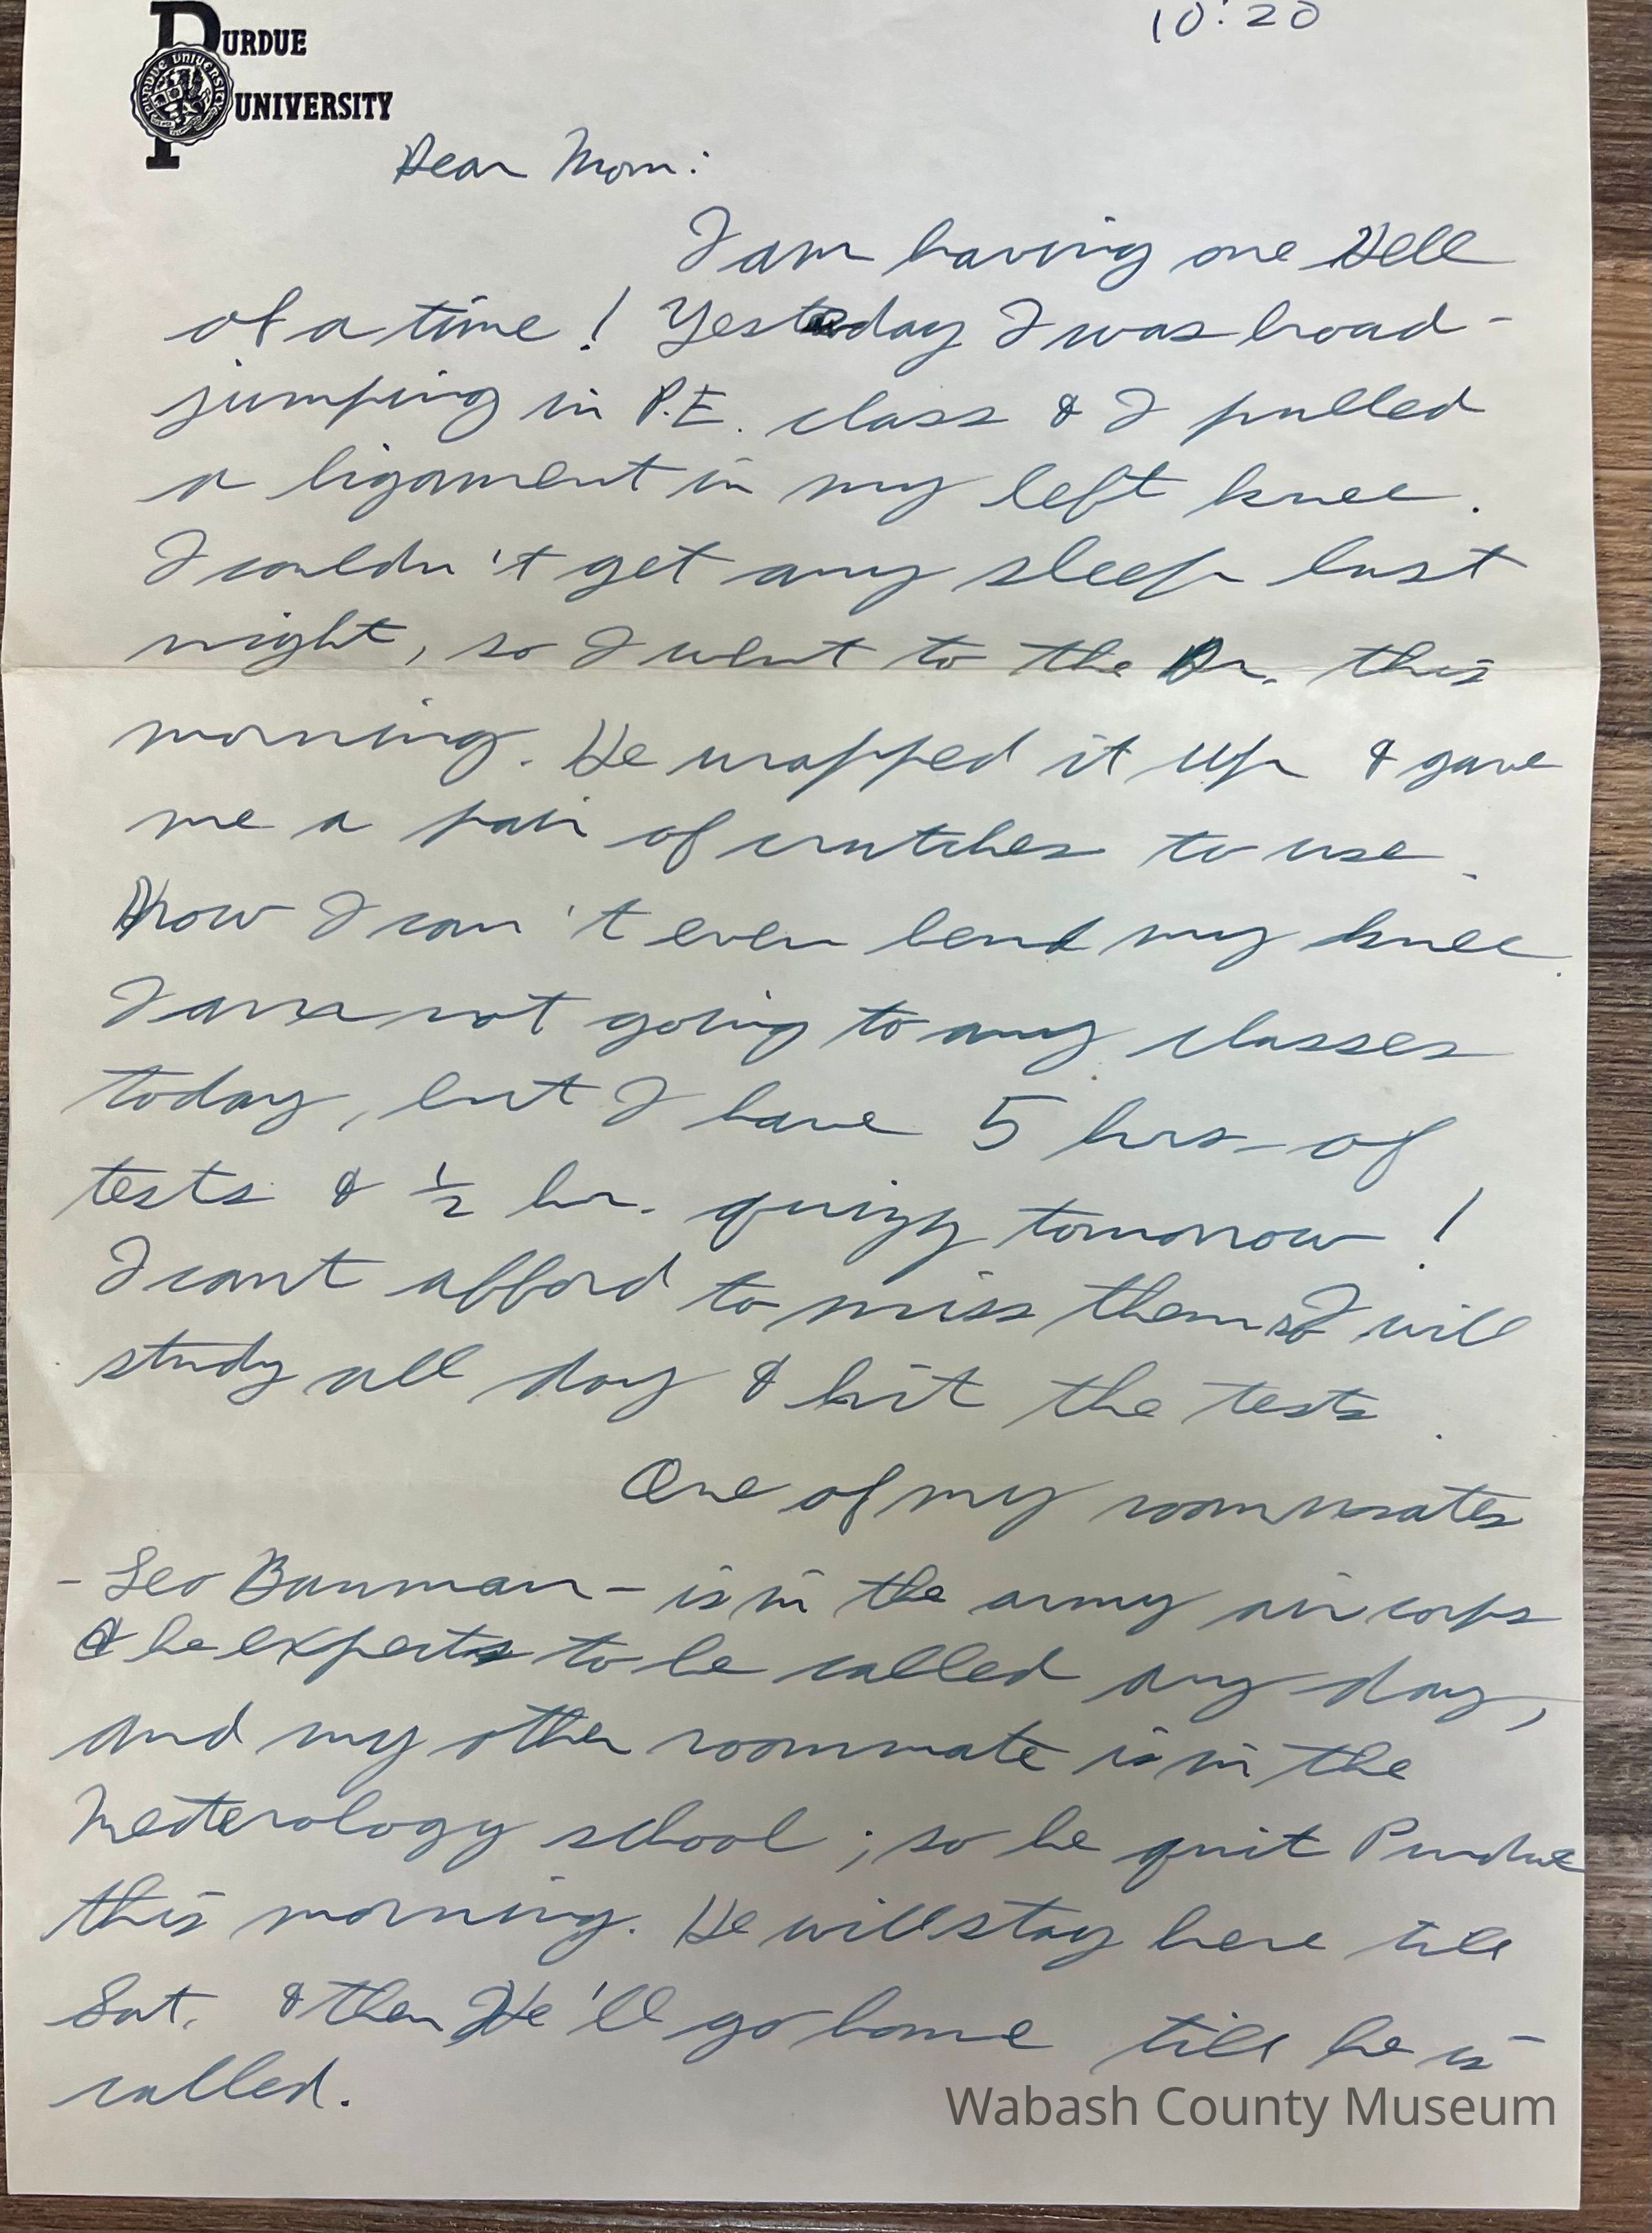 PURDUE
UNIVERSITY
PURDUE UNIVERSITY
10:20
Dear Mom:
I am having one Hell
of a time! Yesterday I was broad-
jumping in P.E. class & I pulled
a ligament in my left knee.
I couldn't get any sleep last
night, so I went to the Dr. this
morning. He wrapped it up & gave
me a pair of crutches to use.
Now I can't even bend my knee.
I am not going to any classes
today, but I have 5 hrs of
tests & 1/2 hr. quizz tomorrow!
I cant afford to miss them so I will
study all day & hit the tests.
One of my roommates
- Leo Bauman - is in the army air corps
& he expects to be called any day,
and my other roommate is in the
Meterology school; so he quit Purdue
this morning. He will stay here till
Sat. & then He'll go home till he is
called.
Wabash County Museum